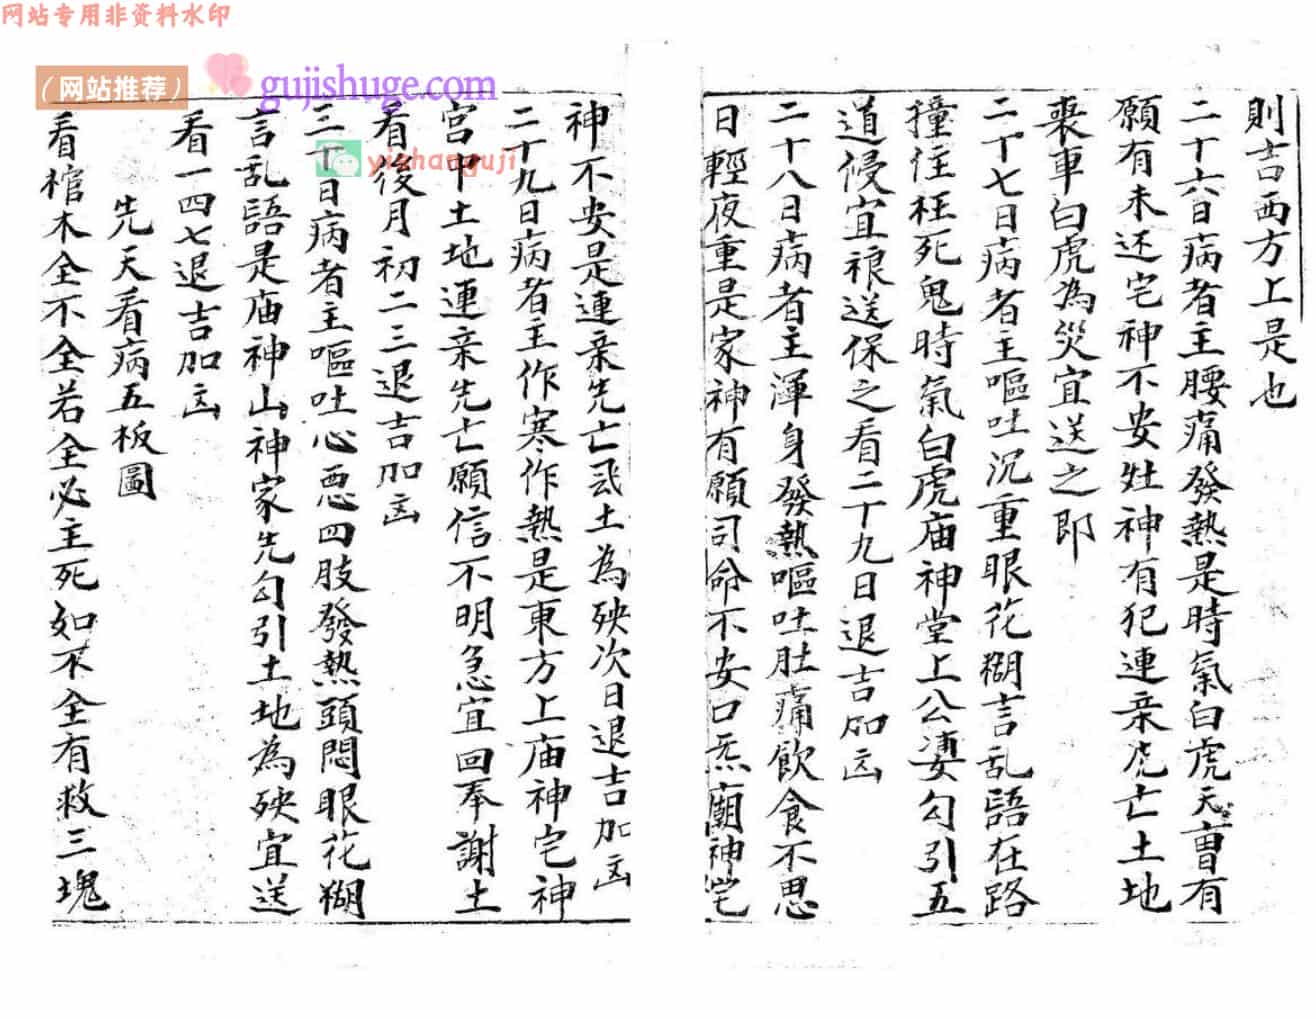 网站专用非资料水印
（网站推荐）
gujishuge.com
yishanguji
則吉西方上是也
二十六日病者主腰痛發熱是時氣白虎天曹有
願有未还宅神不安灶神有犯連亲先亡土地
喪車白虎為災宜送之即
二十七日病者主嘔吐沉重眼花糊言乱語在路
撞住枉死鬼時氣白虎庙神堂上公婆勾引五
道侵宜祿送保之看二十九日退吉加凶
二十八日病者主渾身發熱嘔吐肚痛飲食不思
日輕夜重是家神有願司命不安口炁廟神宅
神不安是連亲先亡汞土為殃次日退吉加凶
二十九日病者主作寒作熱是東方上庙神宅神
宫中土地連亲先亡願信不明急宜回奉謝土
看後月初二三退吉加凶
三十日病者主嘔吐心悪四肢發熱頭悶眼花糊
言乱語是庙神山神家先勾引土地為殃宜送
看一四七退吉加凶
先天看病五板圖
看棺木全不全若全必主死如不全有救三塊